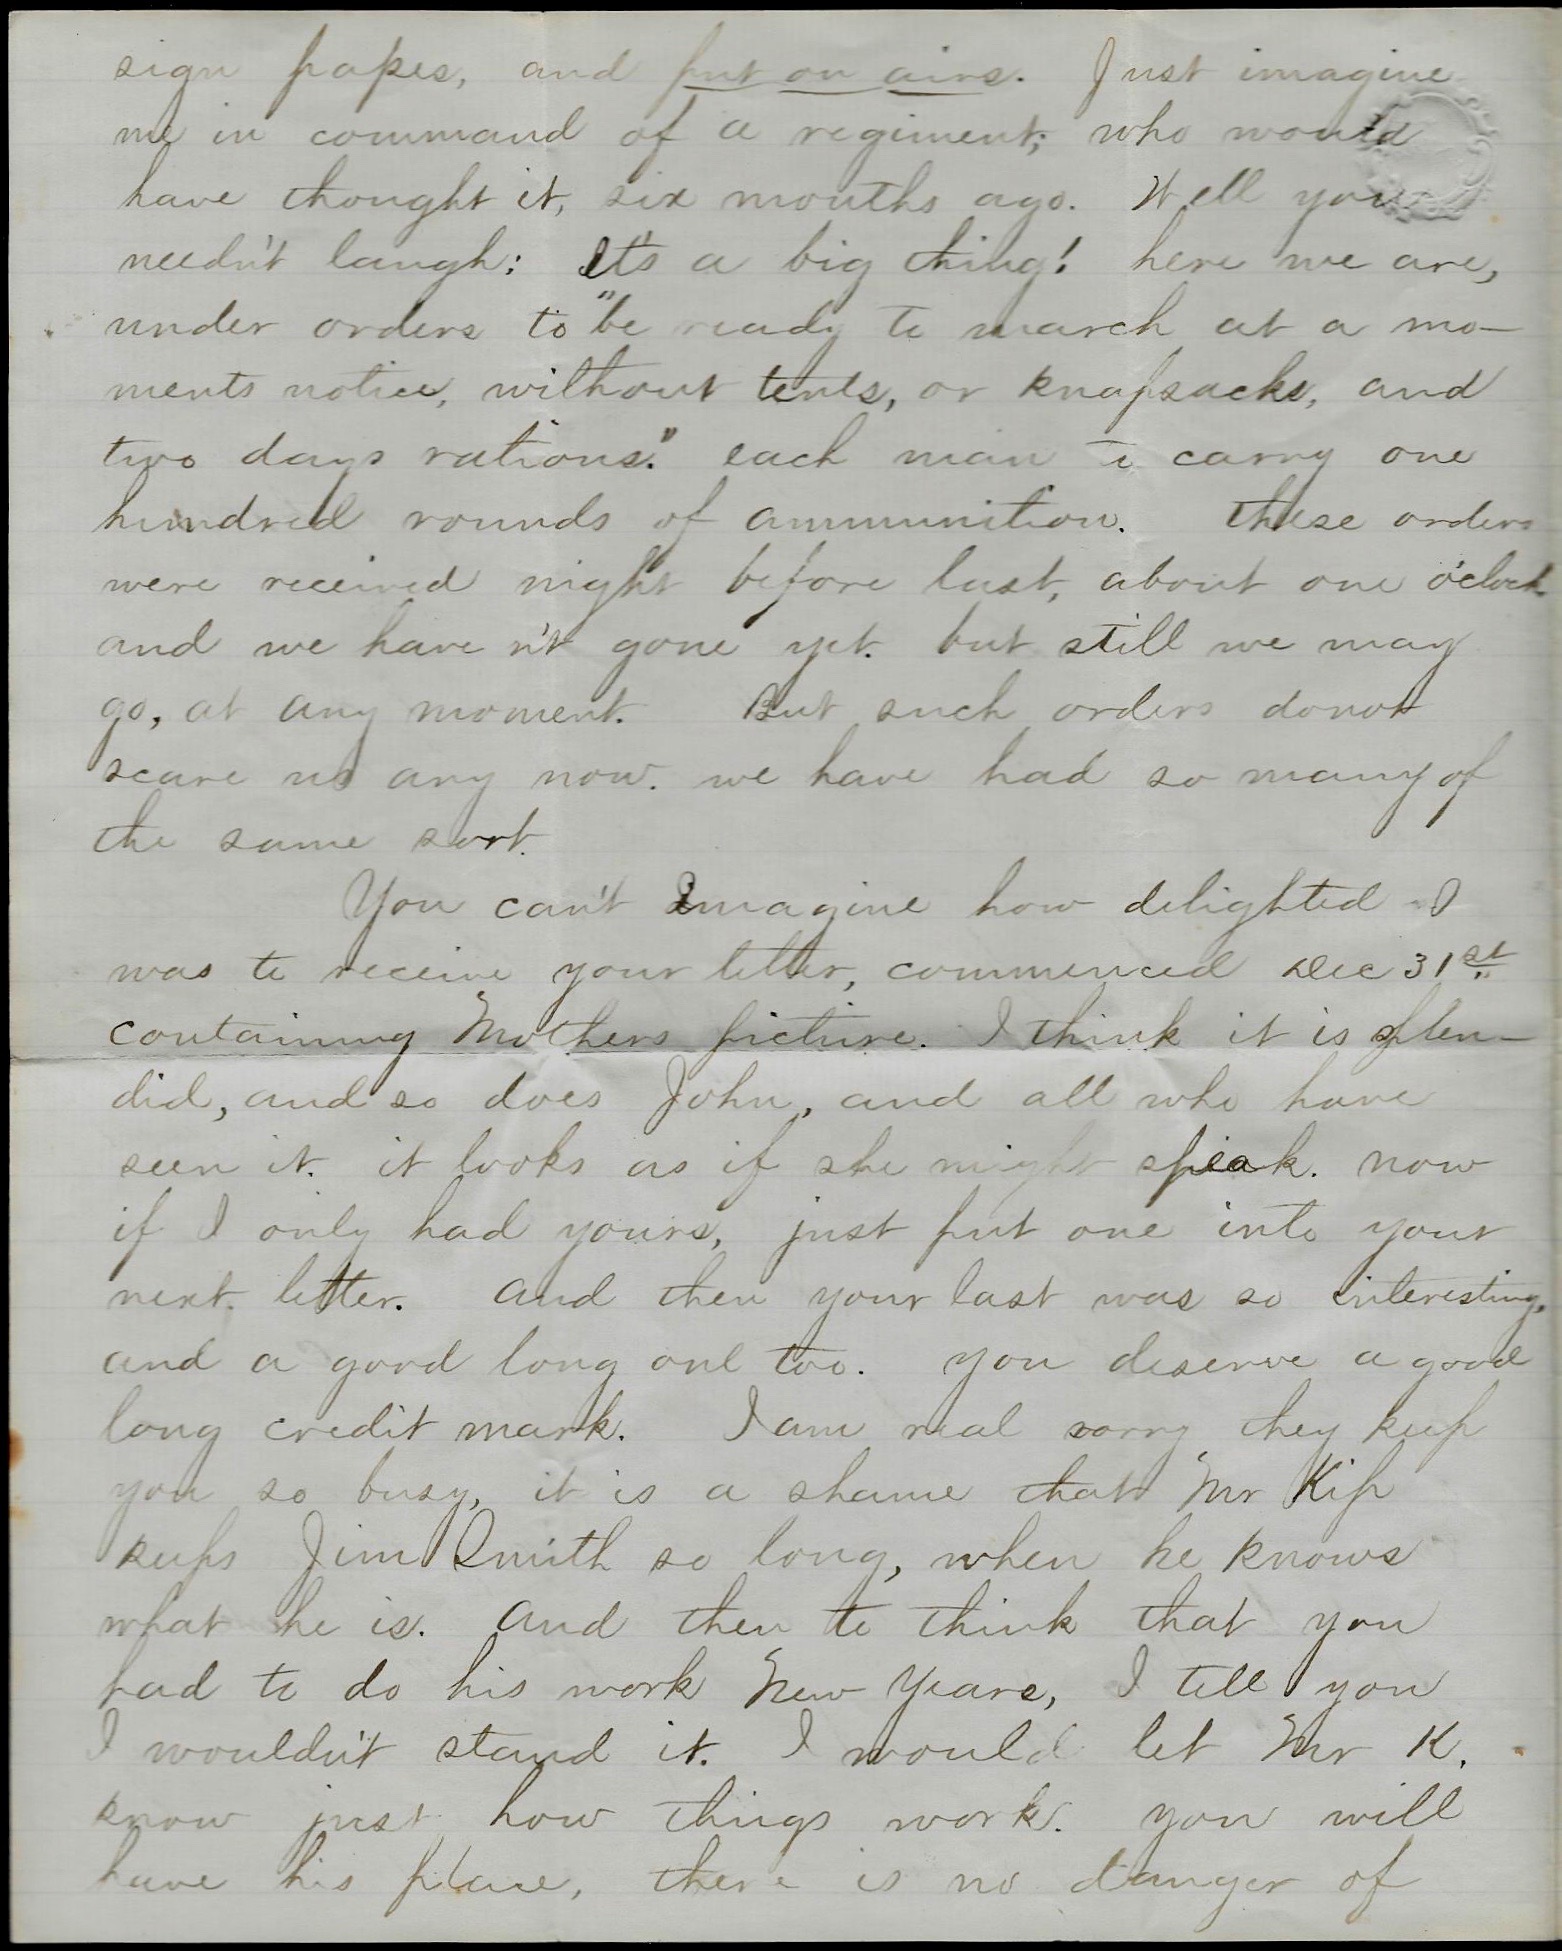 sign papes, and put on airs. Just imagine
me in command of a regiment; who would
have thought it, six mouths ago. Well you
needn't laugh; It's a big thing! here we are,
under orders to "be ready to march at a mo-
ments notice, without tents, or knapsacks, and
two days rations." each man to carry one
hundred rounds of ammunition. These orders
were received night before last, about one o'clock
and we have n't gone yet. but still we may
go, at any moment. But such orders donot
scare us any now. we have had so many of
the same sort.
You can't Imagine how delighted I
was to receive your letter, commenced Dec 31st
containing Mothers picture. I think it is splen-
did, and so does John, and all who have
seen it. it looks as if she might speak. now
if I only had yours, just put one into your
next letter. and then your last was so interesting,
and a good long one too. you deserve a good
long credit mark. I am real sorry they keep
you so busy, it is a shame that Mr Kip
keeps Jim Smith so long, when he knows
what he is. and then to think that you
had to do his work New Years, I tell you
I wouldn't stand it. I would let Mr K.
know just how things work. you will
have his place, there is no danger of